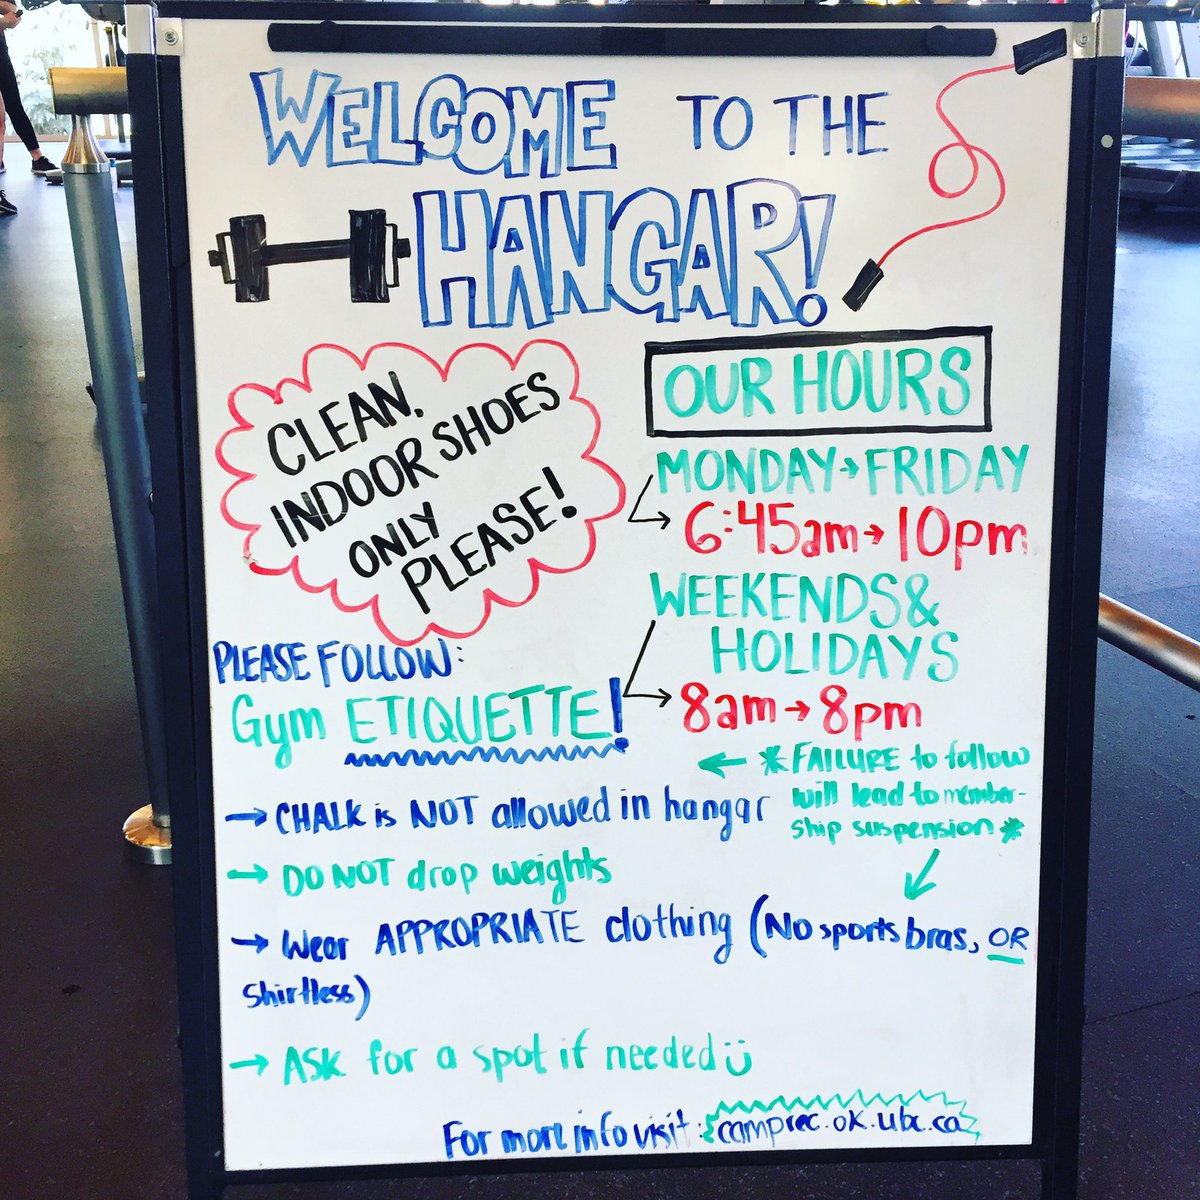 WELCOME TO THE
HANGAR!
CLEAN,
INDOOR SHOES
ONLY
PLEASE!
OUR HOURS
MONDAY → FRIDAY
6:45am → 10pm
WEEKENDS &
HOLIDAYS
8am → 8pm
PLEASE FOLLOW:
Gym ETIQUETTE!
← * FAILURE to follow
will lead to member-
ship suspension *
→ CHALK is NOT allowed in hangar
→ DO NOT drop weights
→ Wear APPROPRIATE clothing (No sports bras, OR
Shirtless)
→ ASK for a spot if needed ü
For more info visit: camprec.ok.ubc.ca